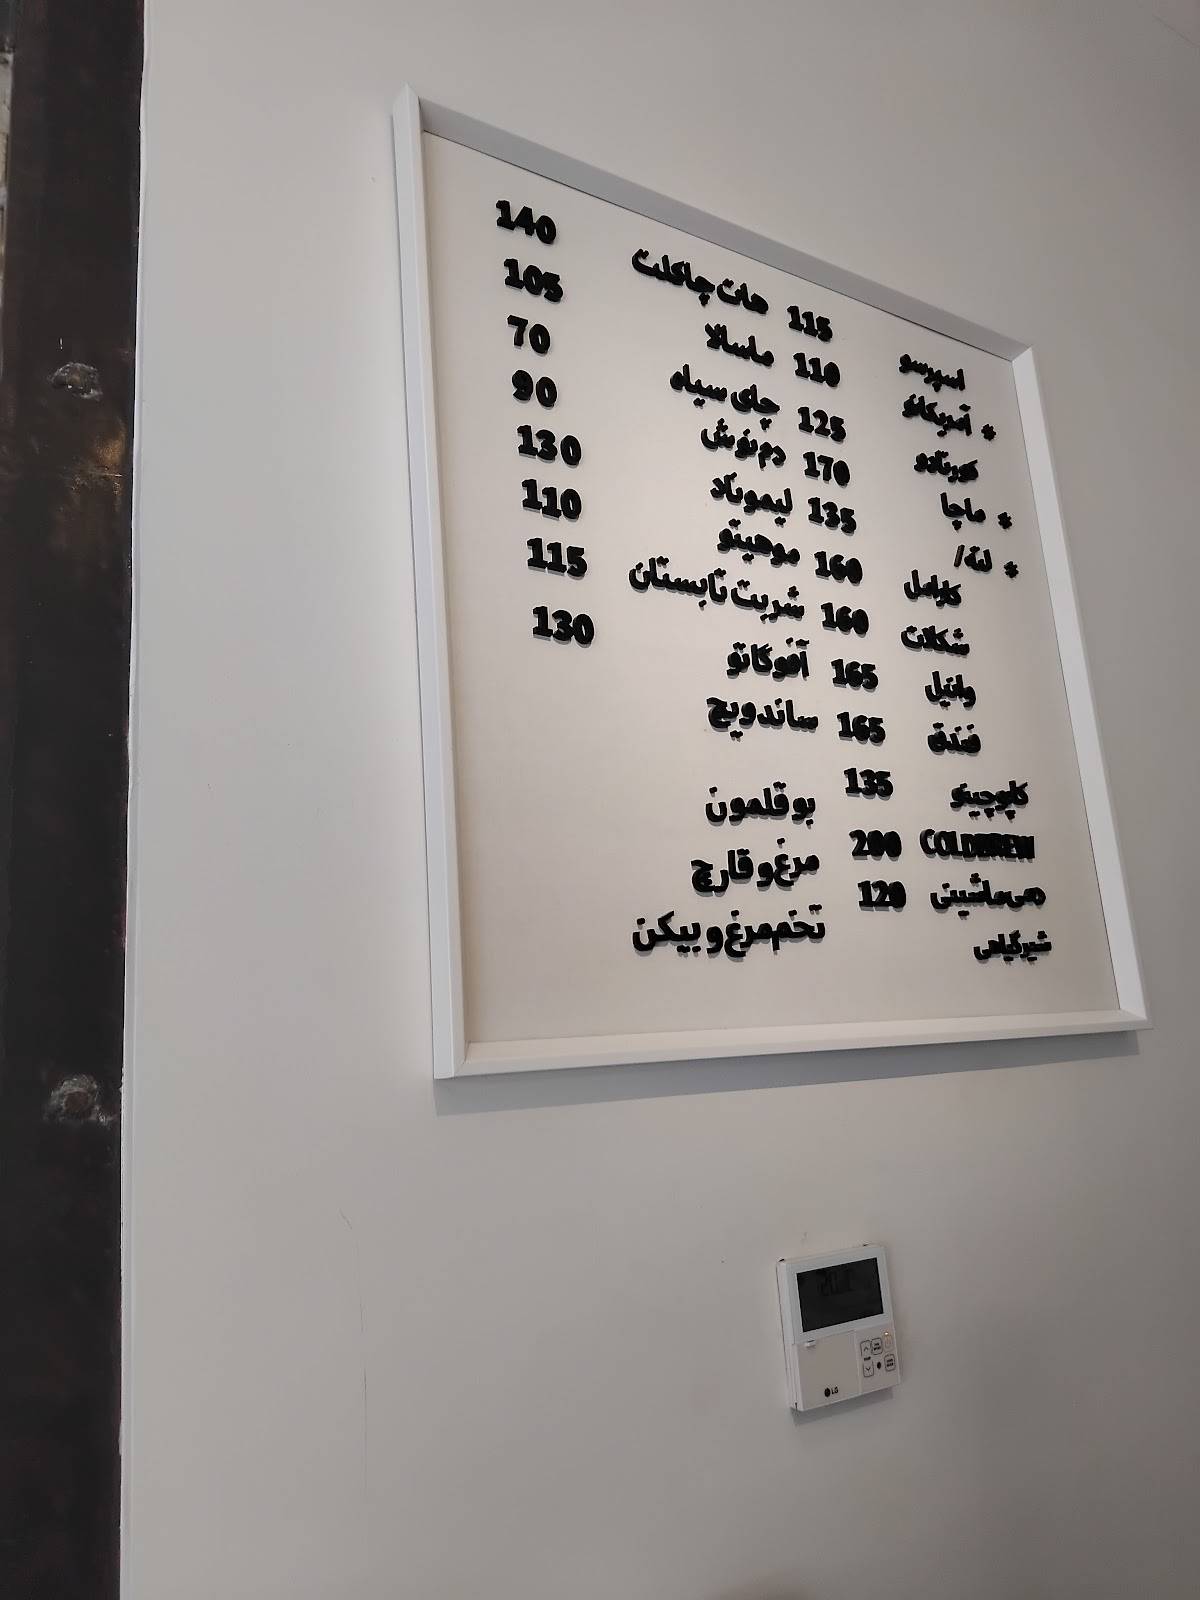 اسپرسو 115
* آمریکانو 110
کورتادو 125
* ماچا 170
* لته/ 135
کارامل 160
شکلات 160
وانیل 165
فندق 165
کاپوچینو 135
COLDBREW 200
دمی ماشینی 120
شیر گیاهی
هات چاکلت 140
ماسالا 105
چای سیاه 70
دم نوش 90
لیموناد 130
موهیتو 110
شربت تابستان 115
آفوگاتو 130
ساندویچ
بوقلمون
مرغ و قارچ
تخم مرغ و بیکن
LG